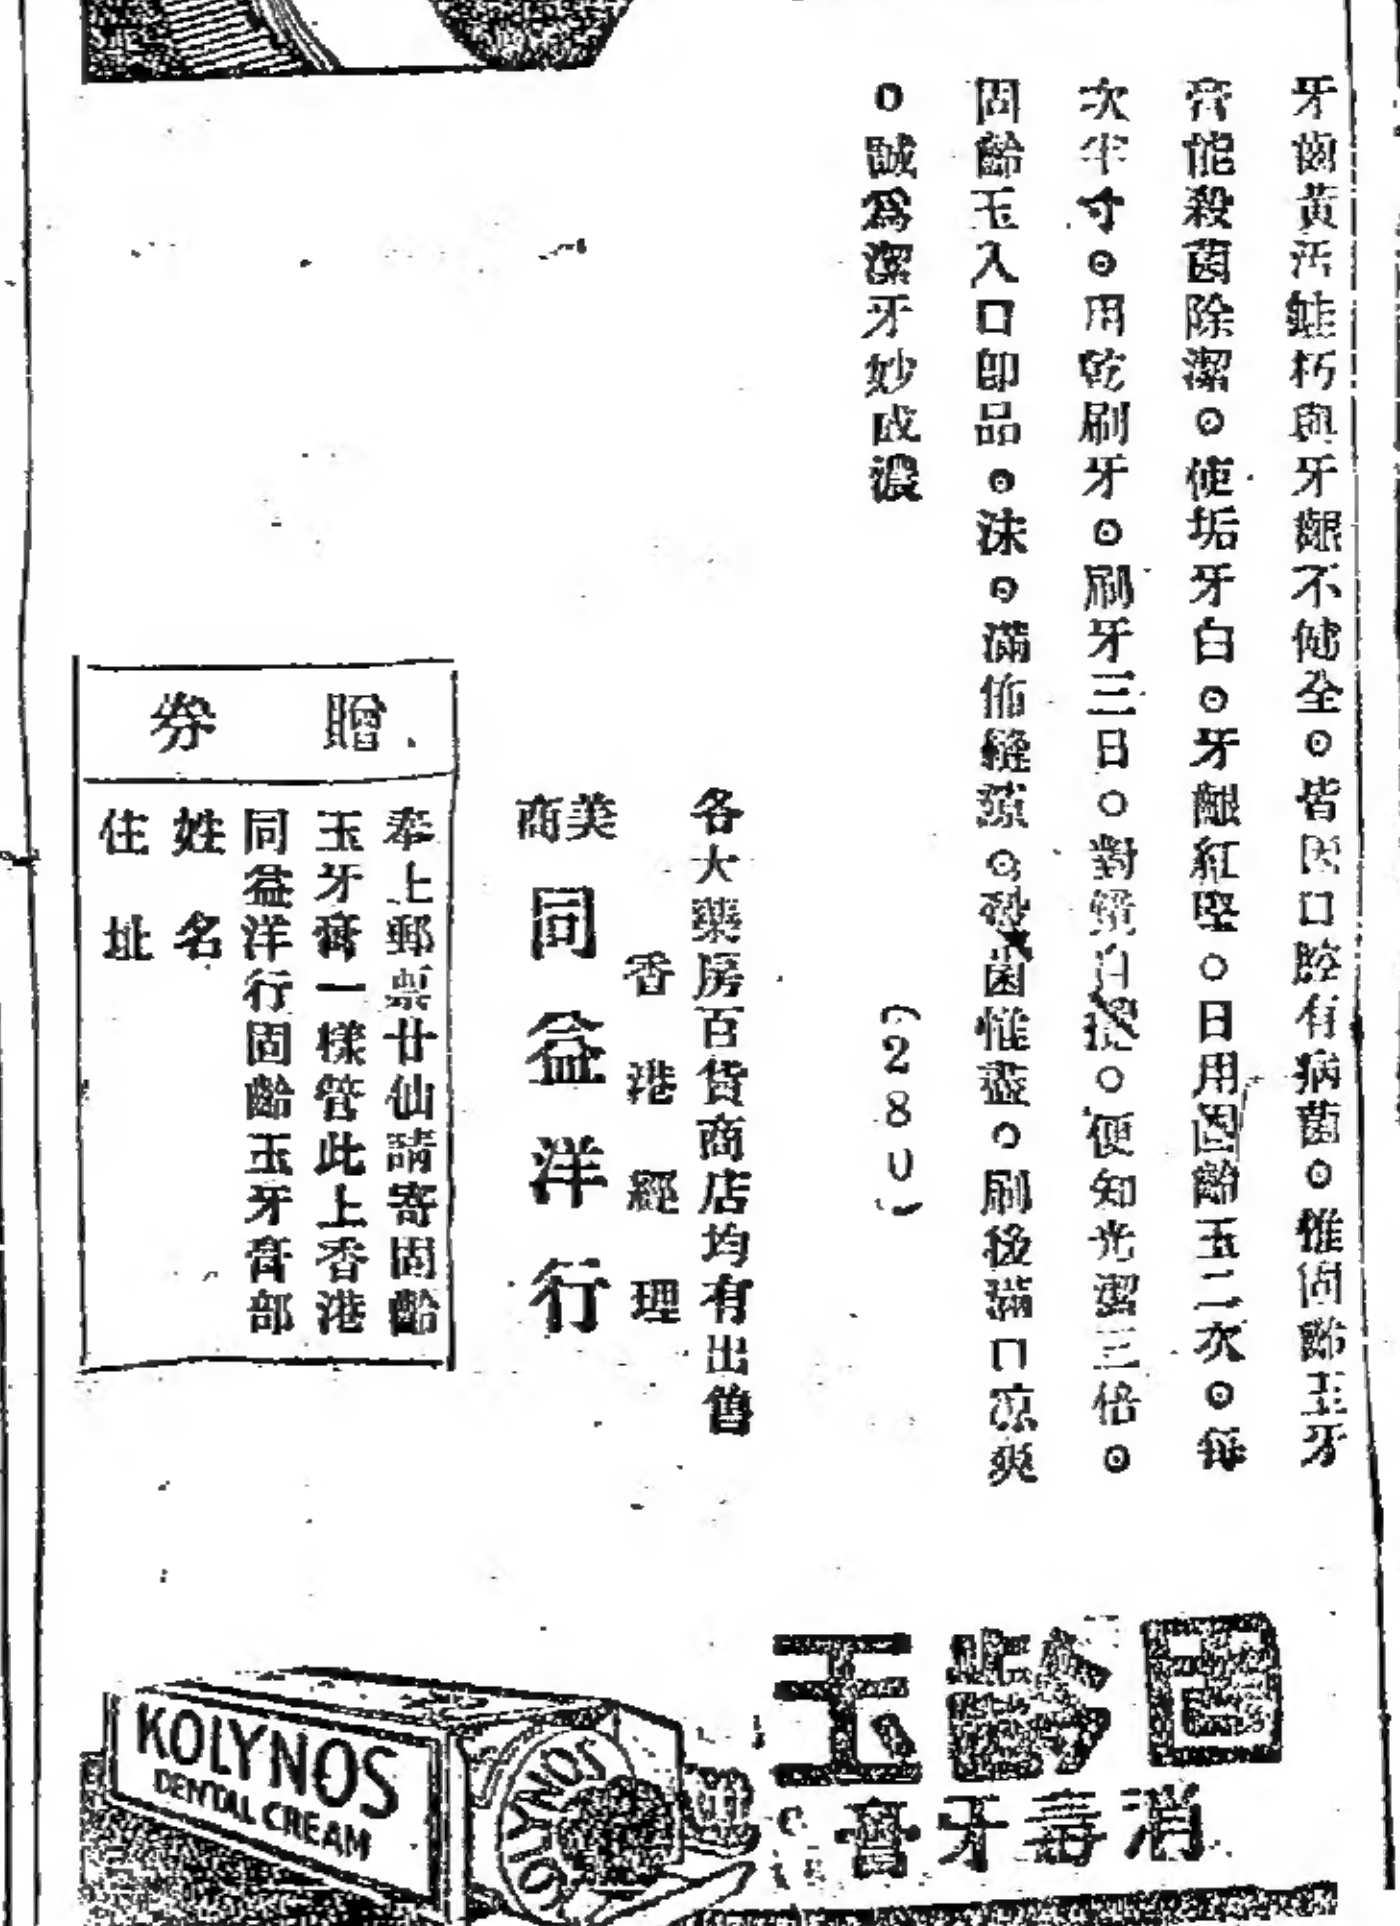 牙齒黃污蛀朽與牙齦不健全⊙皆因口腔有病菌⊙惟固齡玉牙
膏能殺菌除潔⊙使垢牙白⊙牙齦紅堅○日用固齡玉二次⊙每
次半寸⊙用乾刷牙⊙刷牙三日○對鏡自○便知光潔三倍⊙
固齡玉入口即品⊙沫⊙滿佈縫⊙菌惟盡○刷後滿口凉爽
○誠為潔牙妙成濃
(280)
各大藥房百貨商店均有出售
香港經理
美商
同益洋行
贈券
奉上郵票廿仙請寄固齡
玉牙膏一樣管此上香港
同益洋行固齡玉牙膏部
姓名
住址
固齡玉
消毒牙膏
KOLYNOS
DENTAL CREAM
KOLYNOS